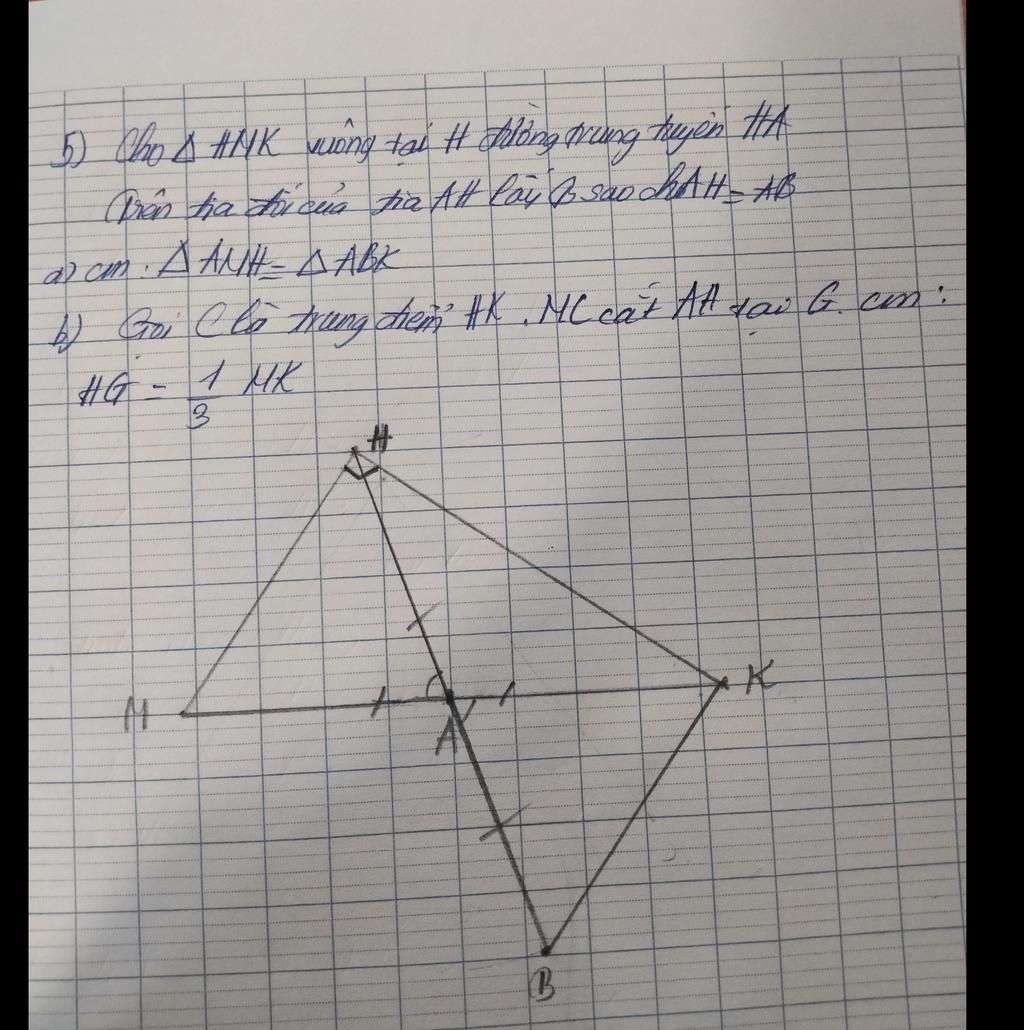 5) Cho Δ HMK vuông tại H đường trung tuyến HA
Trên tia đối của tia AH lấy B sao cho AH = AB
a) cm : Δ AMH = Δ ABK
b) Gọi C là trung điểm HK . MC cắt AH tại G. cm :
HG = 1/3 MK
H
M
K
A
B